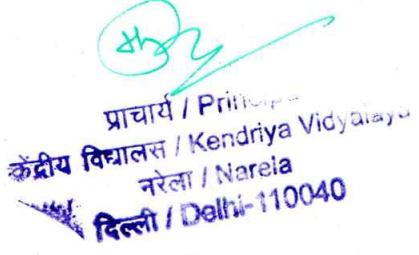 प्राचार्य /
केंद्रीय विद्यालस / Kendriya Vidyalaya
नरेला / Narela
दिल्ली / Delhi-110040